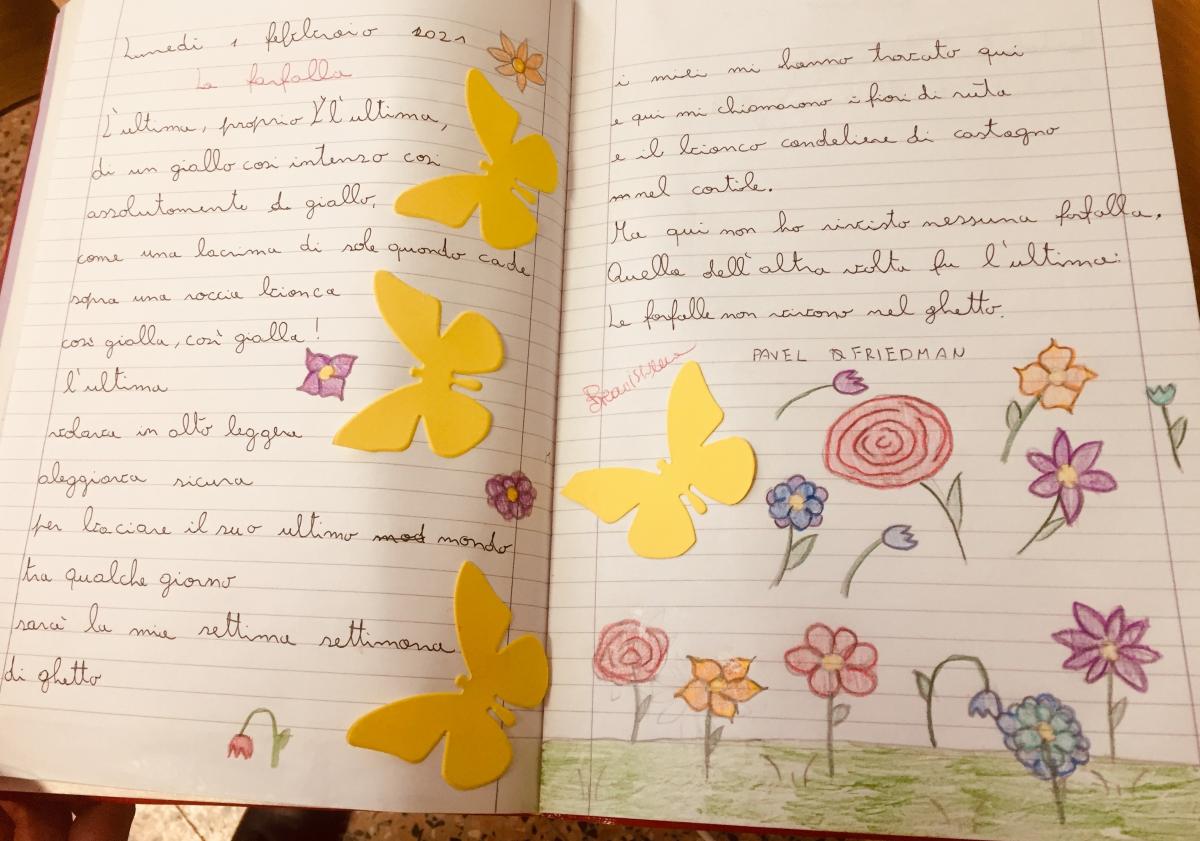 Lunedì 1 febbraio 2021
La farfalla
L'ultima, proprio l'ultima,
di un giallo così intenso così
assolutamente giallo,
come una lacrima di sole quando cade
sopra una roccia bianca
così gialla, così gialla!
l'ultima
volava in alto leggera
aleggiava sicura
per baciare il suo ultimo mondo
tra qualche giorno
sarà la mia settima settimana
di ghetto
i miei mi hanno trovato qui
e qui mi chiamarono i fiori di ruta
e il bianco candeliere di castagno
nel cortile.
Ma qui non ho rivisto nessuna farfalla.
Quella dell'altra volta fu l'ultima:
Le farfalle non vivono nel ghetto.
PAVEL FRIEDMAN
Bravissima